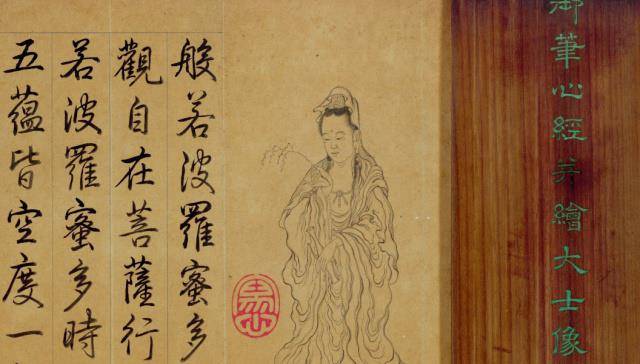 御筆心經并繪大士像
般若波羅蜜多
觀自在菩薩行
若波羅蜜多時
五蘊皆空度一